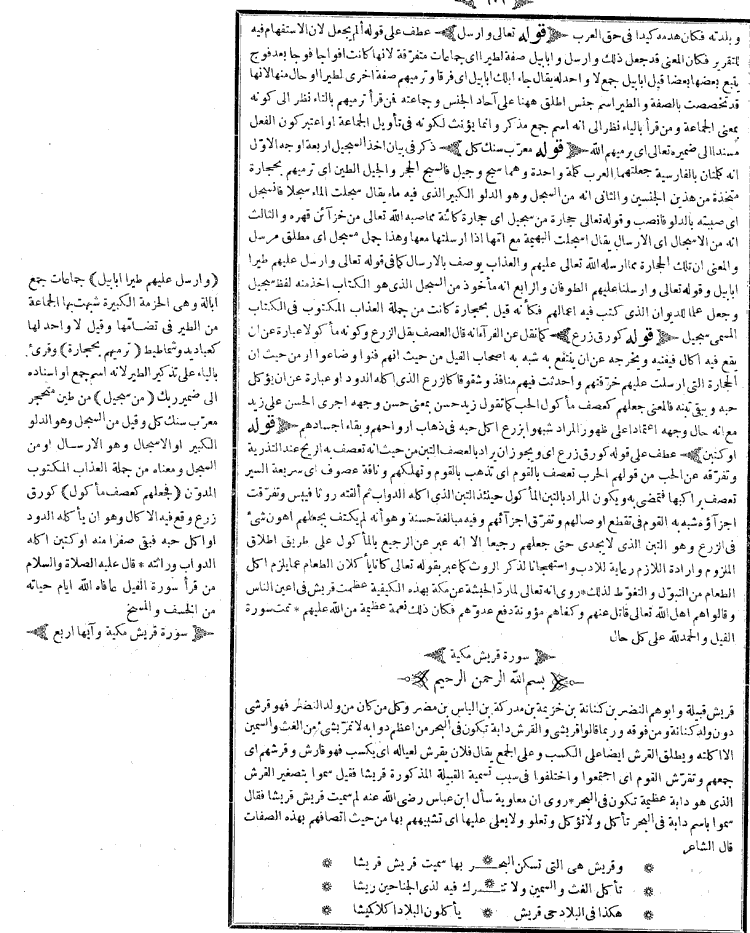 وبلدته فكان هدمه كيدا فى حق العرب ﴿قوله تعالى وارسل﴾ عطف على قوله ألم يجعل لان الاستفهام فيه
للتقرير فكان المعنى قد جعل ذلك وارسل وابابيل صفة لطيرا اى جماعات متفرقة لانها كانت افواجا فوجا بعد فوج
يتبع بعضها بعضا قيل ابابيل جمع لا واحد له يقال جاء ابلك ابابيل اى فرقا وترميهم صفة اخرى لطيرا او حال منها لانها
قد تخصصت بالصفة والطير اسم جنس اطلق ههنا على آحاد الجنس وجماعته فمن قرأ ترميهم بالتاء نظر الى كونه
بمعنى الجماعة ومن قرأ بالياء نظر الى انه اسم جمع مذكر وانما يؤنث لكونه فى تأويل الجماعة او اعتبر كون الفعل
مسندا الى ضميره تعالى اى يرميهم الله ﴿قوله معرب سنك كل﴾ ذكر فى بيان اخذ السجيل اربعة اوجه الاول
انه كلمتان بالفارسية جعلتهما العرب كلمة واحدة وهما سنج وجيل فالسنج الحجر والجيل الطين اى ترميهم بحجارة
متخذة من هذين الجنسين والثانى انه من السجل وهو الدلو الكبير الذى فيه ماء يقال سجلت الماء سجلا فانسجل
اى صببته بالدلو فانصب وقوله تعالى حجارة من سجيل اى حجارة كائنة مما صبه الله تعالى من خزآئن قهره والثالث
انه من الاسجال اى الارسال يقال اسجلت البهيمة مع امها اذا ارسلتها معها وهذا جمل مسجل اى مطلق مرسل
والمعنى ان تلك الحجارة مما ارسله الله تعالى عليهم والعذاب يوصف بالارسال كما فى قوله تعالى وارسل عليهم طيرا
ابابيل وقوله تعالى وارسلنا عليهم الطوفان والرابع انه مأخوذ من السجل الذى هو الكتاب اخذ منه لفظ سجيل
وجعل علما للديوان الذى كتب فيه اعمالهم فكأنه قيل بحجارة كانت من جملة العذاب المكتوب فى الكتاب
المسمى سجيل ﴿قوله كورق زرع﴾ كما نقل عن الفرآء انه قال العصف بقل الزرع وكونه مأكولا عبارة عن ان
يقع فيه اكال فيفنيه ويخرجه عن ان ينتفع به شبه به اصحاب الفيل من حيث انهم فنوا وضاعوا او من حيث ان
الحجارة التى ارسلت عليهم خرقتهم واحدثت فيهم منافذ وشقوقا كالزرع الذى اكله الدود او عبارة عن ان يؤكل
حبه ويبقى تبنه فالمعنى جعلهم كعصف مأكول الحب كما تقول زيد حسن بمعنى حسن وجهه اجرى الحسن على زيد
مع انه حال وجهه اعتمادا على ظهور المراد شبهوا بزرع اكل حبه فى ذهاب ارواحهم وبقاء اجسادهم ﴿قوله
او كتبن﴾ عطف على قوله كورق زرع اى ويجوز ان يراد بالعصف التبن من حيث انه تعصف به الريح عند التذرية
وتفرقه عن الحب من قولهم الحرب تعصف بالقوم اى تذهب بالقوم وتهلكهم وناقة عصوف اى سريعة السير
تعصف براكبها فتمضى به ويكون المراد بالتبن المأكول حينئذ التبن الذى اكله الدواب ثم ألقته روثا فيبس وتفرقت
اجزآؤه شبه به القوم فى تقطع اوصالهم وتفرق اجزآئهم وفيه مبالغة حسنة وهو أنه لم يكتف بجعلهم اهون شئ
فى الزرع وهو التبن الذى لا يجدى حتى جعلهم رجيعا الا انه عبر عن الرجيع بالمأكول على طريق اطلاق
الملزوم وارادة اللازم رعاية للادب واستهجانا لذكر الروث كما عبر بقوله تعالى كانا يأكلان الطعام عما يلزم اكل
الطعام من التبول والتغوط لذلك * روى انه تعالى لما رد الحبشة عن مكة بهذه الكيفية عظمت قريش فى اعين الناس
وقالوا هم اهل الله تعالى قاتل عنهم وكفاهم مؤونة دفع عدوهم فكان ذلك نعمة عظيمة من الله عليهم * تمت سورة
الفيل والحمد لله على كل حال
﴿سورة قريش مكية﴾
﴿بسم الله الرحمن الرحيم﴾
قريش قبيلة وابوهم النضر بن كنانة بن خزيمة بن مدركة بن الياس بن مضر وكل من كان من ولد النضر فهو قرشى
دون ولد كنانة ومن فوقه وربما قالوا قريشى والقرش دابة تكون فى البحر من اعظم دوابه لا تمر بشئ من الغث والسمين
الا اكلته ويطلق القرش ايضا على الكسب وعلى الجمع يقال فلان يقرش لعياله اى يكسب فهو قارش وقرشهم اى
جمعهم وتقرش القوم اى اجتمعوا واختلفوا فى سبب تسمية القبيلة المذكورة قريشا فقيل سموا بتصغير القرش
الذى هو دابة عظيمة تكون فى البحر * روى ان معاوية سأل ابن عباس رضى الله عنه لم سميت قريش قريشا فقال
سموا باسم دابة فى البحر تأكل ولا تؤكل وتعلو ولا يعلى عليها اى تشبيههم بها من حيث اتصافهم بهذه الصفات
قال الشاعر
وقريش هى التى تسكن البحر بها سميت قريش قريشا
تأكل الغث والسمين ولا تترك فيه لذى الجناحين ريشا
هكذا فى البلاد حى قريش يأكلون البلاد اكلا كميشا
(وارسل عليهم طيرا ابابيل) جماعات جمع
ابالة وهى الحزمة الكبيرة شبهت بها الجماعة
من الطير فى تضامها وقيل لا واحد لها
كعباديد وشماطيط (ترميهم بحجارة) وقرئ
بالياء على تذكير الطير لانه اسم جمع او اسناده
الى ضمير ربك (من سجيل) من طين متحجر
معرب سنك كل وقيل من السجل وهو الدلو
الكبير او الاسجال وهو الارسال او من
السجل ومعناه من جملة العذاب المكتوب
المدون (فجعلهم كعصف مأكول) كورق
زرع وقع فيه الاكال وهو ان يأكله الدود
او اكل حبه فبقى صفرا منه او كتبن اكله
الدواب وراثته * قال عليه الصلاة والسلام
من قرأ سورة الفيل عافاه الله ايام حياته
من الخسف والمسخ
﴿سورة قريش مكية وآيها اربع﴾